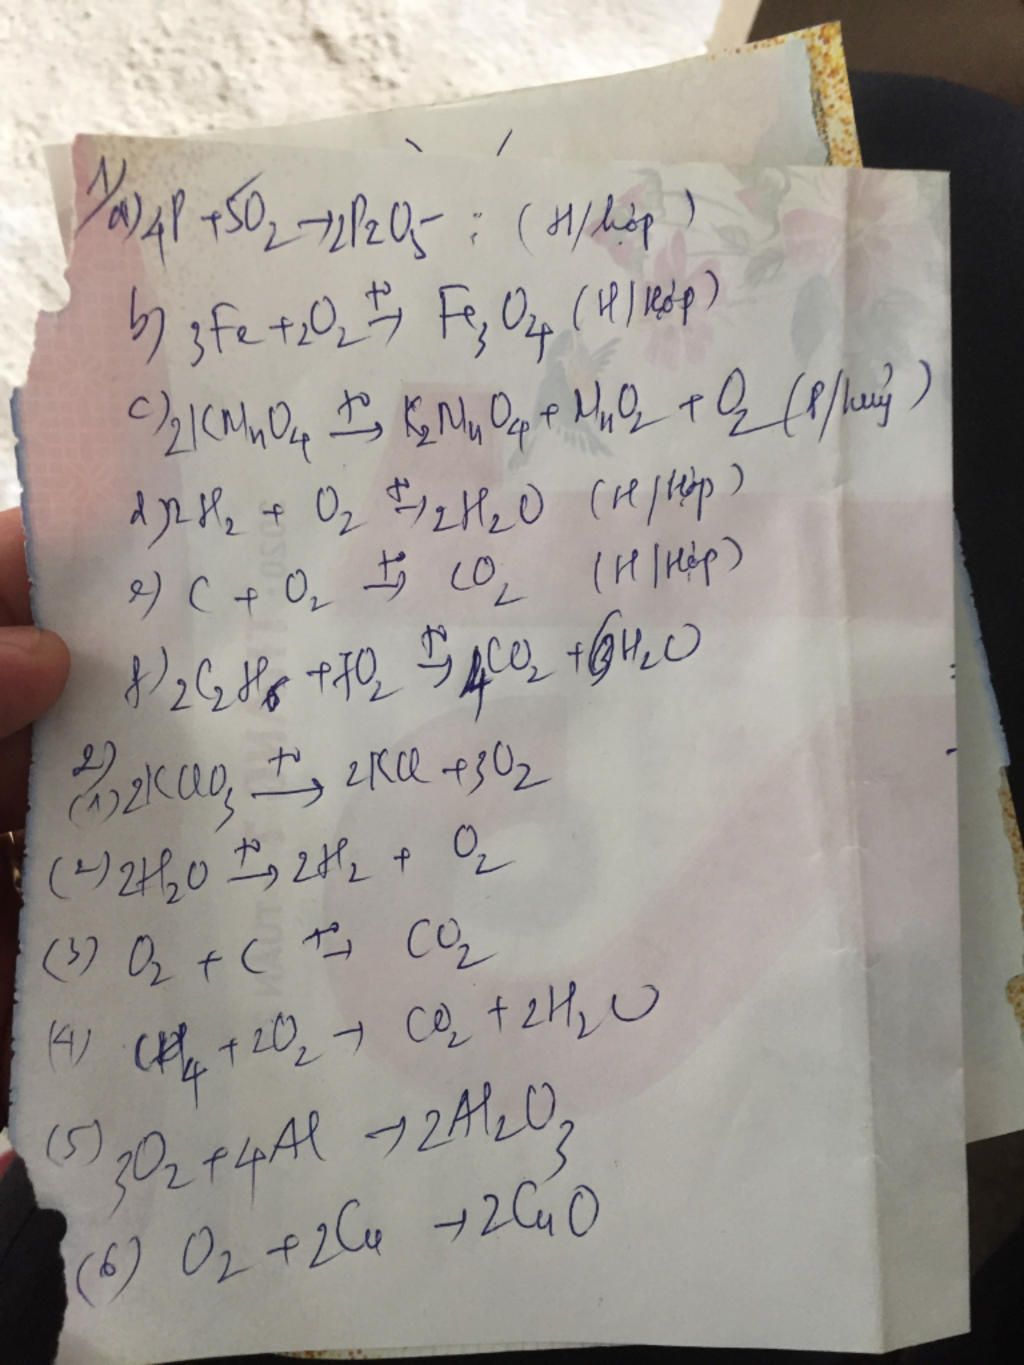 1/a) 4P + 5O₂ → 2P₂O₅ : (H/hợp)
b) 3Fe + 2O₂ →(t°) Fe₃O₄ (H/Hợp)
c) 2KMnO₄ →(t°) K₂MnO₄ + MnO₂ + O₂ (P/huỷ)
d) 2H₂ + O₂ →(t°) 2H₂O (H/Hợp)
e) C + O₂ →(t°) CO₂ (H/Hợp)
f) 2C₂H₆ + 7O₂ →(t°) 4CO₂ + 6H₂O
2)
(1) 2KClO₃ →(t°) 2KCl + 3O₂
(2) 2H₂O →(t°) 2H₂ + O₂
(3) O₂ + C →(t°) CO₂
(4) CH₄ + 2O₂ → CO₂ + 2H₂O
(5) 3O₂ + 4Al → 2Al₂O₃
(6) O₂ + 2Cu → 2CuO